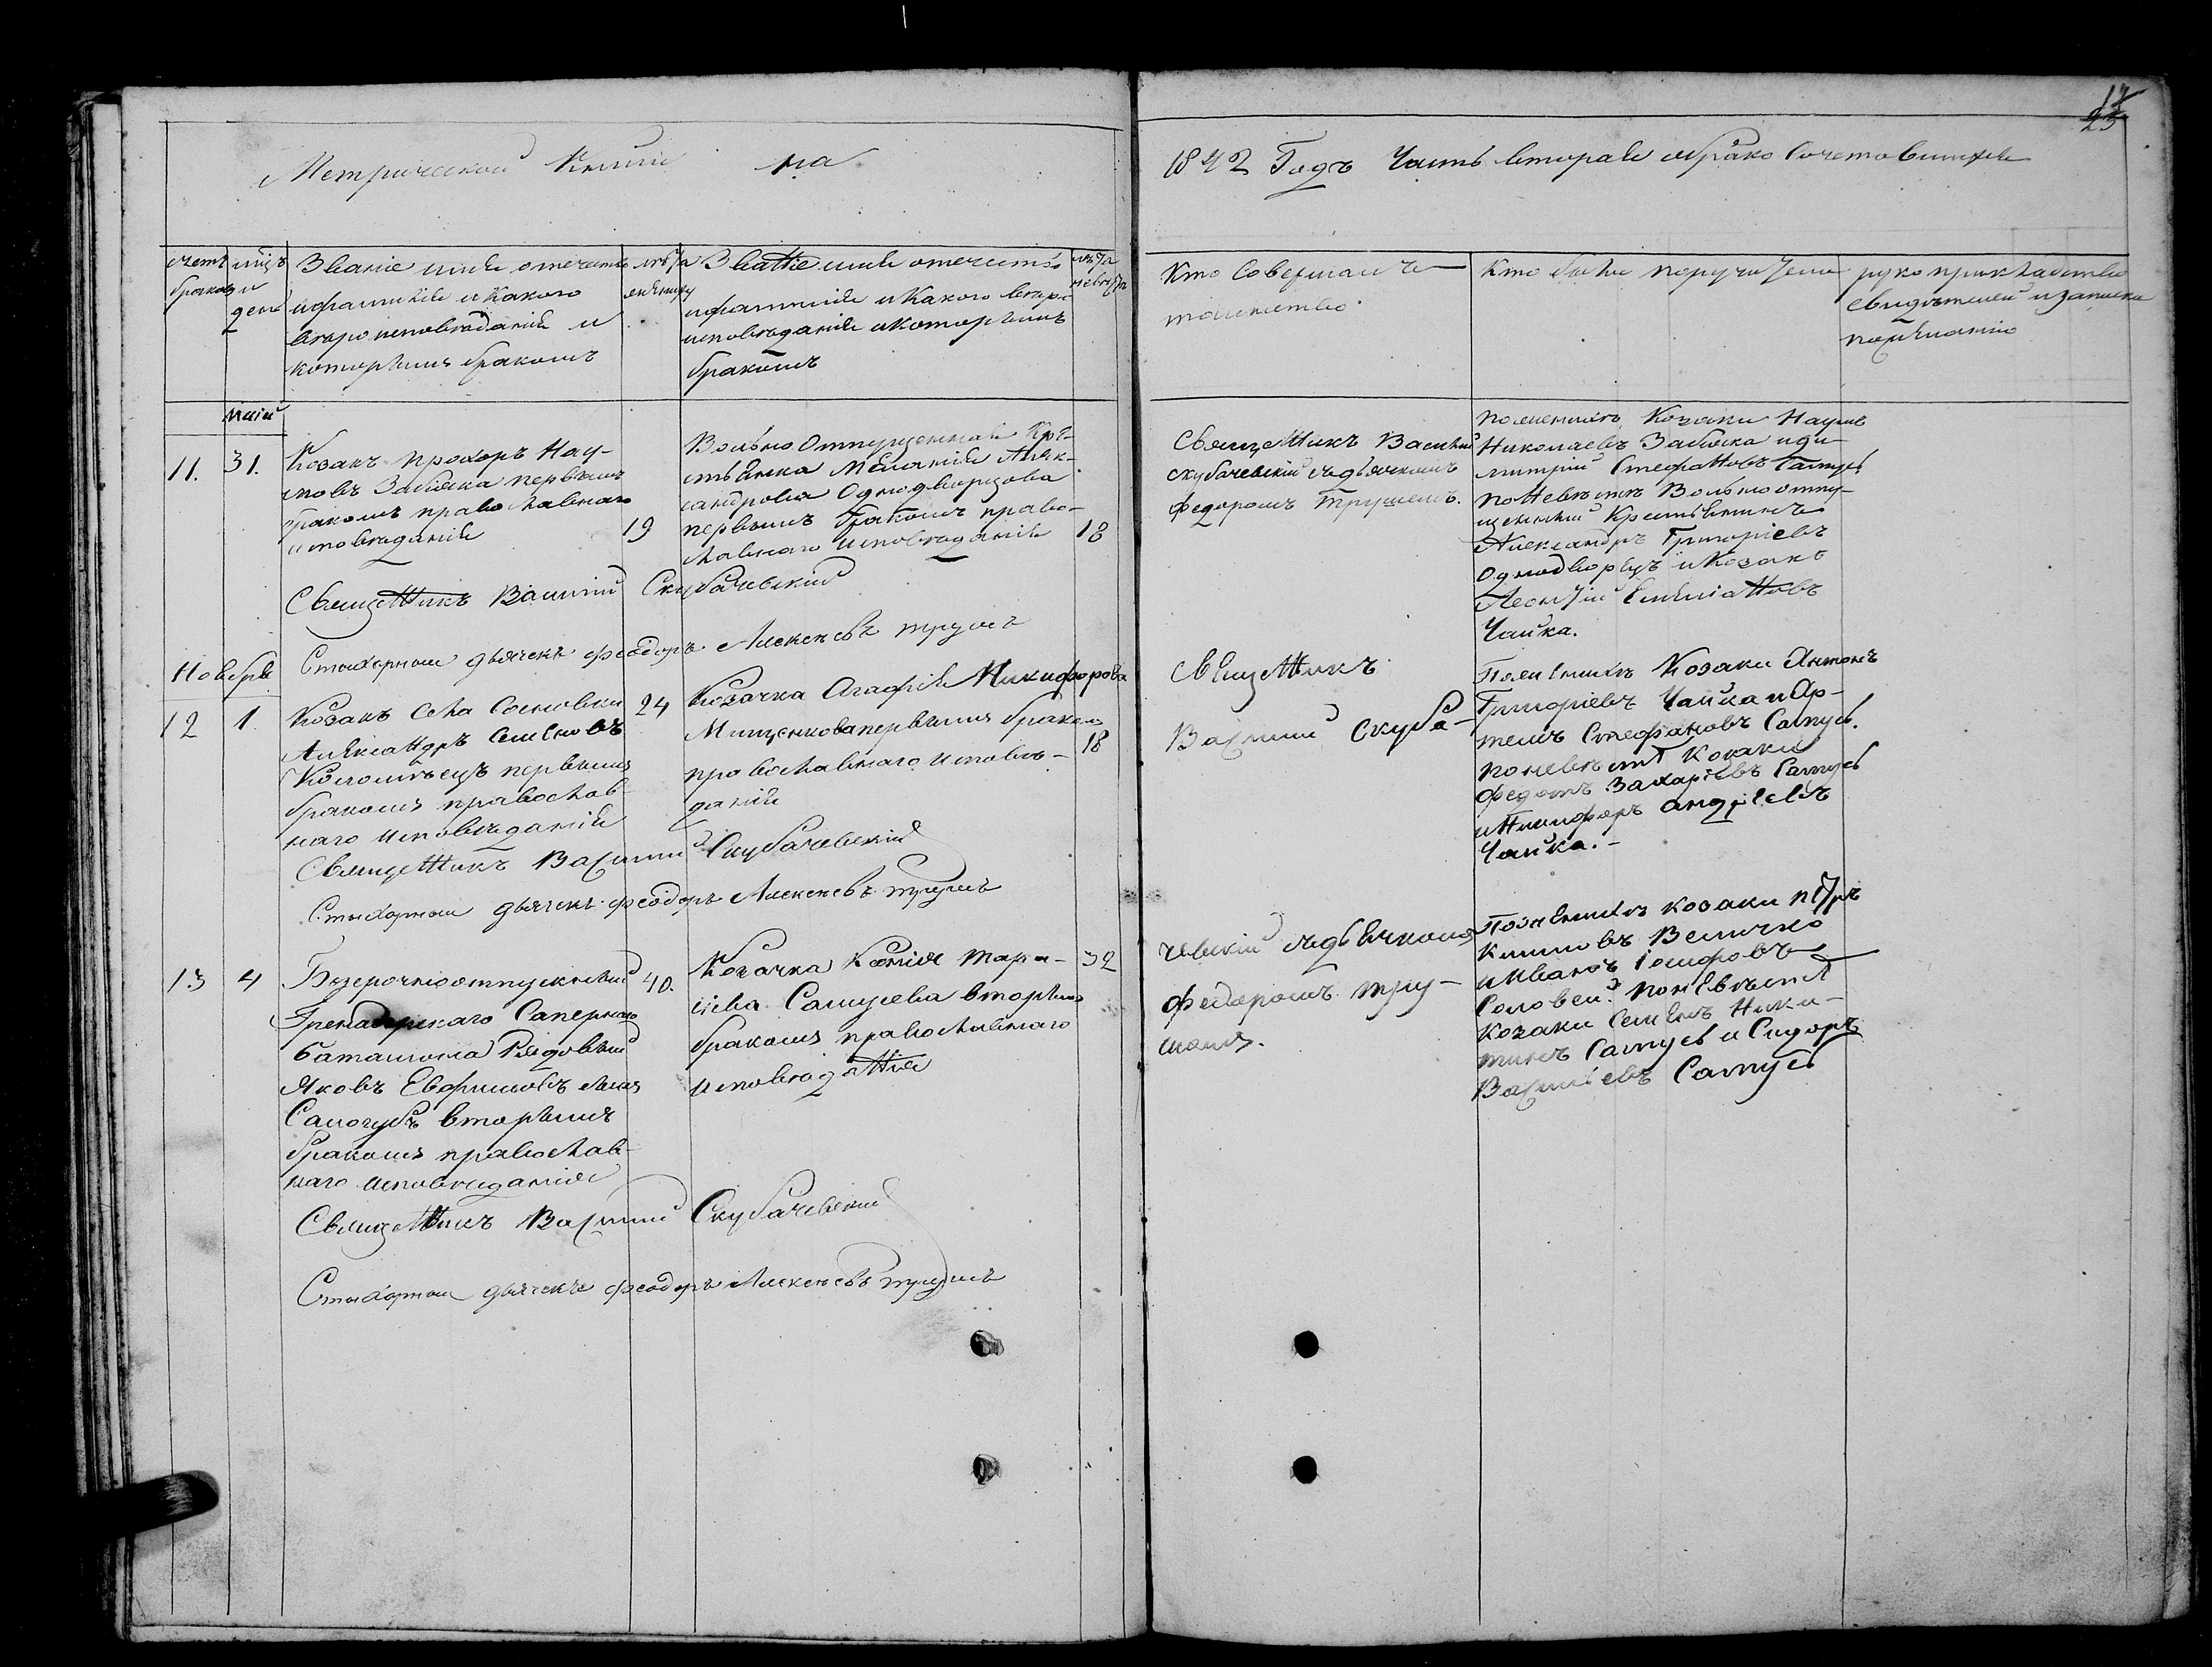 Метрической Книги на
1842 Годъ Часть вторая о бракосочетавшихся
счетъ браковъ
мцъ и день
Званіе имя отечество
и фамилія и Какого
вероисповеданія и
которымъ бракомъ
лета жениху
Званіе имя отечество
и фамилія и Какого веро-
исповеданія и которымъ
бракомъ
лета невесты
Кто Совершалъ
таинство
Кто были поручители
рукоприкладство
свидетелей и записи
по желанію
11. 31.
Козакъ Прохоръ Нау-
мовъ Забіяка первымъ
бракомъ православнаго
исповеданія
19
Вольно Отпущенная Кре-
стьянка Меланія Алек-
сандрова Однодворцова
первымъ бракомъ право-
славнаго исповеданія
18
Священникъ Василій
Скубачевскій съ дьячкомъ
Федоромъ Трушемъ.
по женихъ Козаки Наумъ
Николаевъ Забіяка и Ди-
митрій Стефановъ Самусь
по Невесте Вольноотпу-
щенный Крестьянинъ
Александръ Григоріевъ
Однодворецъ и Козакъ
Леонтій Емиліановъ
Чайка.
Священникъ Василій Скубачевскій
Стихарный дьячекъ Феодоръ Алексеевъ Трушъ
Ноября
12 1.
Козакъ Села Сосновки
Александръ Семеновъ
Коломіецъ первымъ
бракомъ православ-
наго исповеданія
24
Козачка Агафія Никифорова
Мищенкова первымъ бракомъ
православнаго исповe-
данія
18
Священникъ
Василій Скуба-
По жениху Козаки Антонъ
Григоріевъ Чайка и Ар-
темъ Стефановъ Самусь.
по невесте Козаки
Федотъ Захаріевъ Самусь
и Никифоръ Андреевъ
Чайка.-
Священникъ Василій Скубачевскій
Стихарный дьячекъ Феодоръ Алексеевъ Трушъ
13 4
Безсрочноотпускный
Гренадерскаго Сапернаго
баталіона Рядовый
Яковъ Евфимовъ сынъ
Самогубъ вторымъ
бракомъ православ-
наго исповеданія
40.
Козачка Ксенія Тара-
сіева Самусева вторымъ
бракомъ православнаго
исповеданія
32
чевскій съ дьячкомъ
Федоромъ Тру-
шомъ.
По жениху козаки Петръ
Климовъ Величко
и Иванъ Іосифовъ
Соловей. по невесте
козаки Семенъ Ники-
тинъ Самусь и Сидоръ
Василіевъ Самусь
Священникъ Василій Скубачевскій
Стихарный дьячекъ Феодоръ Алексеевъ Трушъ